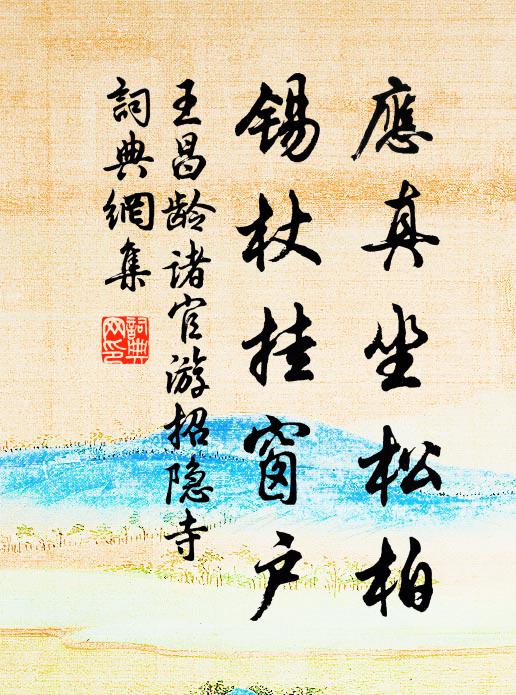 應真坐松柏
錫杖挂窗户
王昌龄诸官游招隐寺
詞典網集
詞典
网印